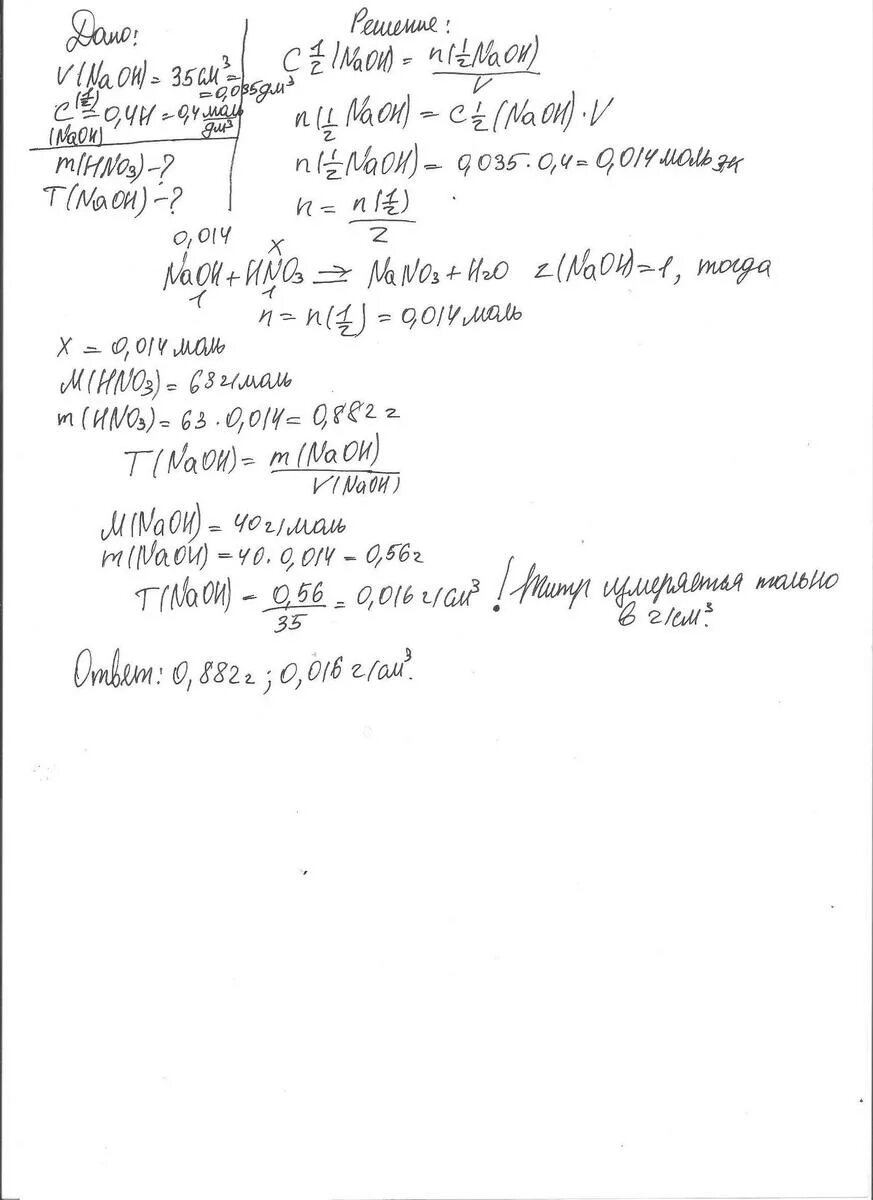 Дано:
V(NaOH) = 35 см³ =
= 0,035 дм³
C(1/2) = 0,4Н = 0,4 моль/дм³
(NaOH)
m(HNO₃) - ?
T(NaOH) - ?
Решение:
C 1/2 (NaOH) = n(1/2 NaOH)/V
n(1/2 NaOH) = C 1/2 (NaOH) · V
n(1/2 NaOH) = 0,035 · 0,4 = 0,014 моль эк
n = n(1/2)/z
0,014 x
NaOH + HNO₃ ⇒ NaNO₃ + H₂O z(NaOH) = 1, тогда
1 1
n = n(1/2) = 0,014 моль
x = 0,014 моль
M(HNO₃) = 63 г/моль
m(HNO₃) = 63 · 0,014 = 0,882 г
T(NaOH) = m(NaOH)/V(NaOH)
M(NaOH) = 40 г/моль
m(NaOH) = 40 · 0,014 = 0,56 г
T(NaOH) = 0,56/35 = 0,016 г/см³ ! Титр измеряется только
в г/см³.
Ответ: 0,882 г ; 0,016 г/см³.